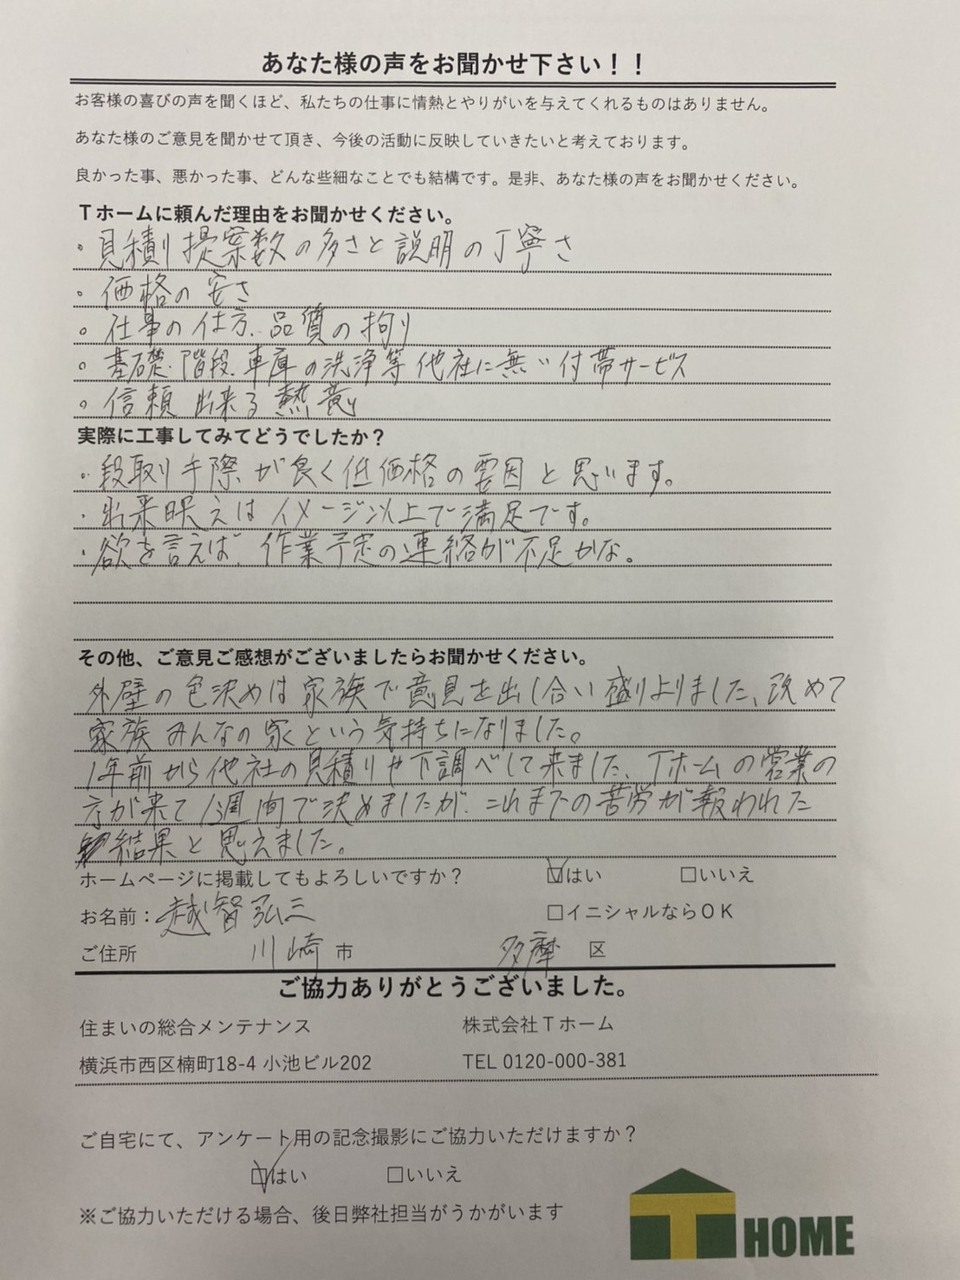 あなた様の声をお聞かせ下さい！！
お客様の喜びの声を聞くほど、私たちの仕事に情熱とやりがいを与えてくれるものはありません。
あなた様のご意見を聞かせて頂き、今後の活動に反映していきたいと考えております。
良かった事、悪かった事、どんな些細なことでも結構です。是非、あなた様の声をお聞かせください。
Ｔホームに頼んだ理由をお聞かせください。
・見積り提案数の多さと説明の丁寧さ
・価格の安さ
・仕事の仕方、品質の拘り
・基礎・階段・車庫の洗浄等他社に無い付帯サービス
・信頼出来る熱意
実際に工事してみてどうでしたか？
・段取り手際が良く低価格の要因と思います。
・出来映えはイメージ以上で満足です。
・欲を言えば、作業予定の連絡が不足かな。
その他、ご意見ご感想がございましたらお聞かせください。
外壁の色決めは家族で意見を出し合い盛り上りました、改めて
家族みんなの家という気持ちになりました。
1年前から他社の見積りや下調べして来ました、Tホームの営業の
方が来て1週間で決めましたが、これまでの苦労が報われた
結果と思えました。
ホームページに掲載してもよろしいですか？ ☑はい □いいえ
お名前：越智弘三 □イニシャルならＯＫ
ご住所 川崎市 多摩区
ご協力ありがとうございました。
住まいの総合メンテナンス 株式会社Ｔホーム
横浜市西区楠町18-4 小池ビル202 TEL 0120-000-381
ご自宅にて、アンケート用の記念撮影にご協力いただけますか？
☑はい □いいえ
※ご協力いただける場合、後日弊社担当がうかがいます
T HOME